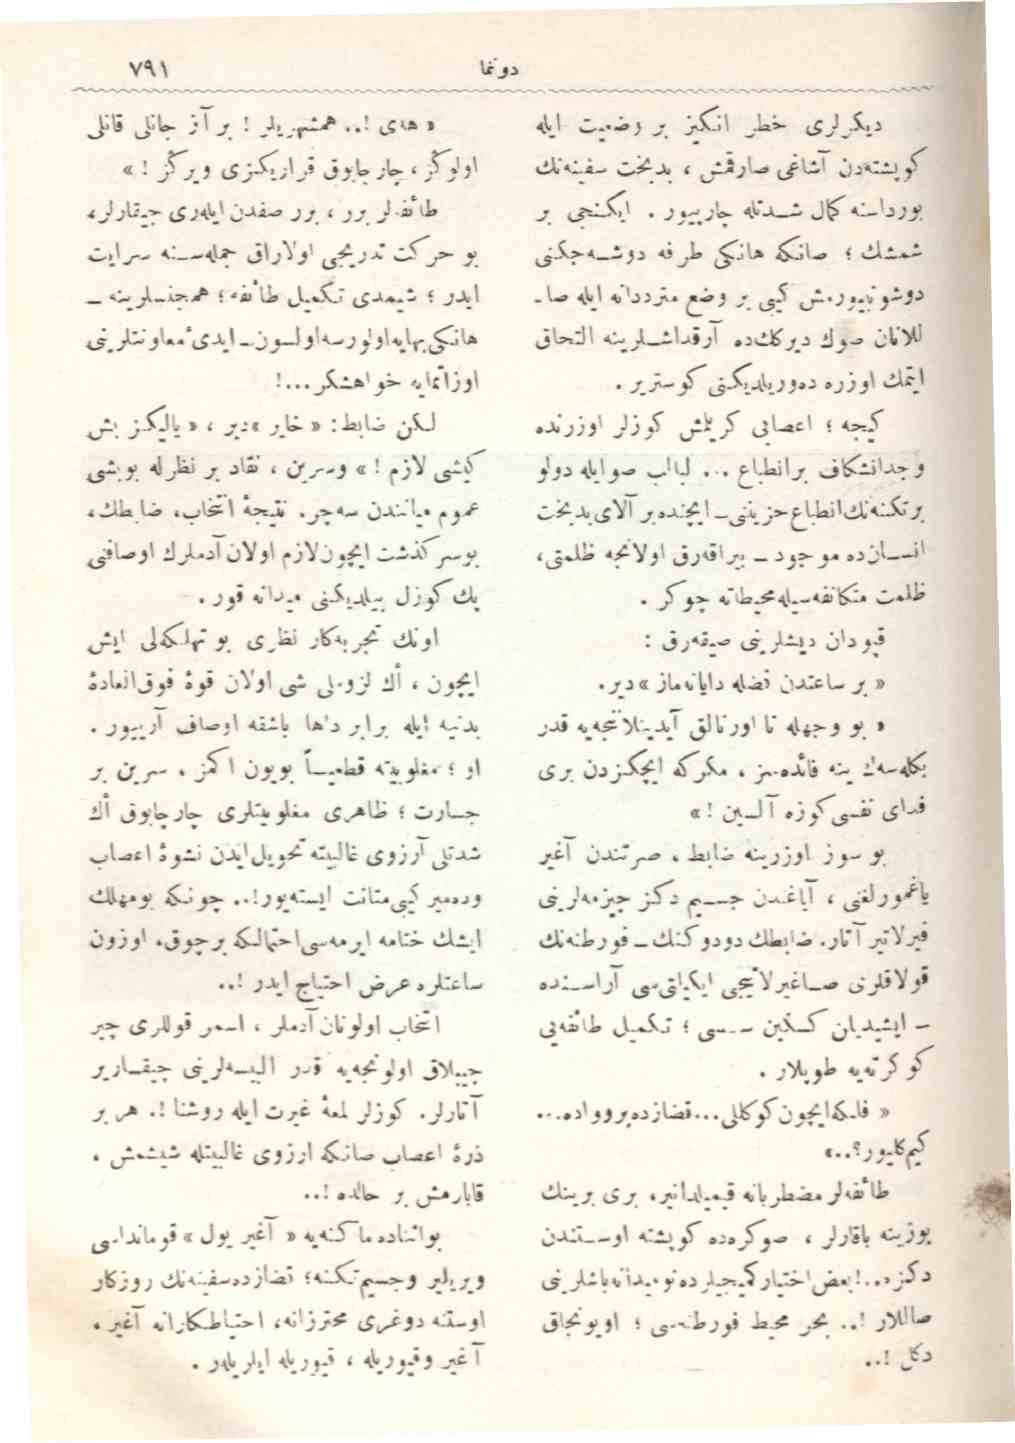 دوننما
٧٩١
ديكرلرى خطر انكيز بر وضعيت ايله
كوپشته‌دن آشاغى صارقمش ، بدبخت سفينه‌نك
بورداسنه كمال شدتله چارپييور . ايكنجى بر
شمشك ؛ صانكه هانكى طرفه دوشه‌جكنى
دوشونييورمش كيبى بر وضع مترددانه ايله صا-
للانان صوك ديركك‌ده آرقداشلرينه التحاق
ايتمك اوزره ده‌وريلديكنى كوسترير .
كيجه ؛ اعصابى كريلمش كوزلر اوزرنده
وجدانشكاف برانطباع ... لبالب صوايله دولو
برتكنه‌نك انطباع حزيننى ـ ايچنده بر آلاى بدبخت
انسان‌ده موجود ـ بيراقه‌رق اولانجه ظلمتى،
ظلمت متكاثفه‌سيله محيطاته چوكر .
قپودان ديشلرينى صيقه‌رق :
« بر ساعتدن فضله دايانه‌ماز » دير.
« بو وجهله تا اورتالق آيدينلانجه‌يه قدر
بكله‌سه‌ك ينه فائده‌سز ، مكركه ايچكزدن برى
فداى نفسى كوزه آلسين ! »
بو سوز اوزرينه ضابط ، صرتندن آغير
ياغمورلغنى ، آياغندن جسيم دكز چيزمه‌لرينى
فيرلاتير آتار. ضابطك دودوكنك ـ فورطنه‌نك
قولاقلرى صاغيرلاتيجى ايكيلتى‌سى آراسنده
ـ ايشيديلن كسكين سسى ؛ تكميل طائفه‌يى
كوكرته‌يه طوپلار .
« فلكه‌ايچون كوكللى... قضازده‌بروواده...
كيم كلييور؟.. »
طائفه‌لر مضطربانه قيميلدانير، برى برينك
يوزينه باقارلر ، صوكره‌ده كوپشته اوستندن
دكزه..! بعض اختيار كميجيلرده نوميدانه باشلرينى
صاللار !.. بحر محيط فورطنه‌سى ؛ اويونجاق
دكل !..
« هاى !.. همشهريلر ! بر آز جانلى قانلى
اولوكز ، چارچابوق قراريكزى ويركز ! »
طائفه‌لر برر ، برر صفدن ايله‌رى چيقارلر،
بو حركت تدريجى اولاراق جمله‌سنه سرايت
ايدر ؛ شيمدى تكميل طائفه ؛ همجنسلرينه ـ
هانكى بهايه اولورسه اولسون ـ ايدئ معاونتلرينى
اوزاتمايه خواهشكر...!
لكن ضابط: « خاير » دير ، « يالكز بش
كيشى لازم ! » وسرين ، نقاد بر نظرله بوبشى
عموم مياننـدن سه‌چر. نتيجهٔ انتخاب، ضابطك،
بوسركذشت ايچون لازم اولان آدملرك اوصافنى
پك كوزل بيلديكنى ميدانه قور .
اونك تجربه‌كار نظرى بو تهلكه‌لى ايش
ايچون ، اك لزوملى شى اولان قوهٔ فوق‌العادهٔ
بدنيه ايله برابر داها باشقه اوصاف آرييور .
او ؛ مغلوبيته قطعياً بويون اكمز ، سرين بر
جسارت ؛ ظاهرى مغلوبيتلرى چارچابوق اك
شدتلى آرزوى غالبيته تحويل ايدن نشوهٔ اعصاب
وده‌مير كيبى متانت ايسته‌يور!.. چونكه بومهلك
ايشك ختامه ايرمه‌سى احتمالكه برچوق، اوزون
ساعتلره عرض احتياج ايدر !..
انتخاب اولونان آدملر ، اسمر قوللرى چير
چيپلاق اولونجه‌يه قدر البسه‌لرينى چيقارير
آتارلر. كوزلر لمعهٔ غيرت ايله روشنا !. هر بر
ذرهٔ اعصاب صانكه ارزوى غالبيتله شيشمش ،
قابارمش بر حالده !..
بواثناده ماكنه‌يه « آغير يول » قومانداسى
ويريلير وجسيم تكنه؛ قضازده سفينه‌نك روزكار
اوستنه دوغرى محترزانه، احتياطكارانه آغير ،
آغير وقيوريله ، قيوريله ايلريله‌ر .